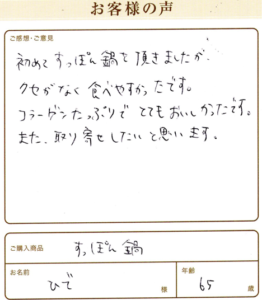 お客様の声
ご感想・ご意見
初めてすっぽん鍋を頂きましたが、
クセがなく食べやすかったです。
コラーゲンたっぷりでとてもおいしかったです。
また、取り寄せしたいと思います。
ご購入商品 すっぽん鍋
お名前 年齢
ひで 様 65 歳